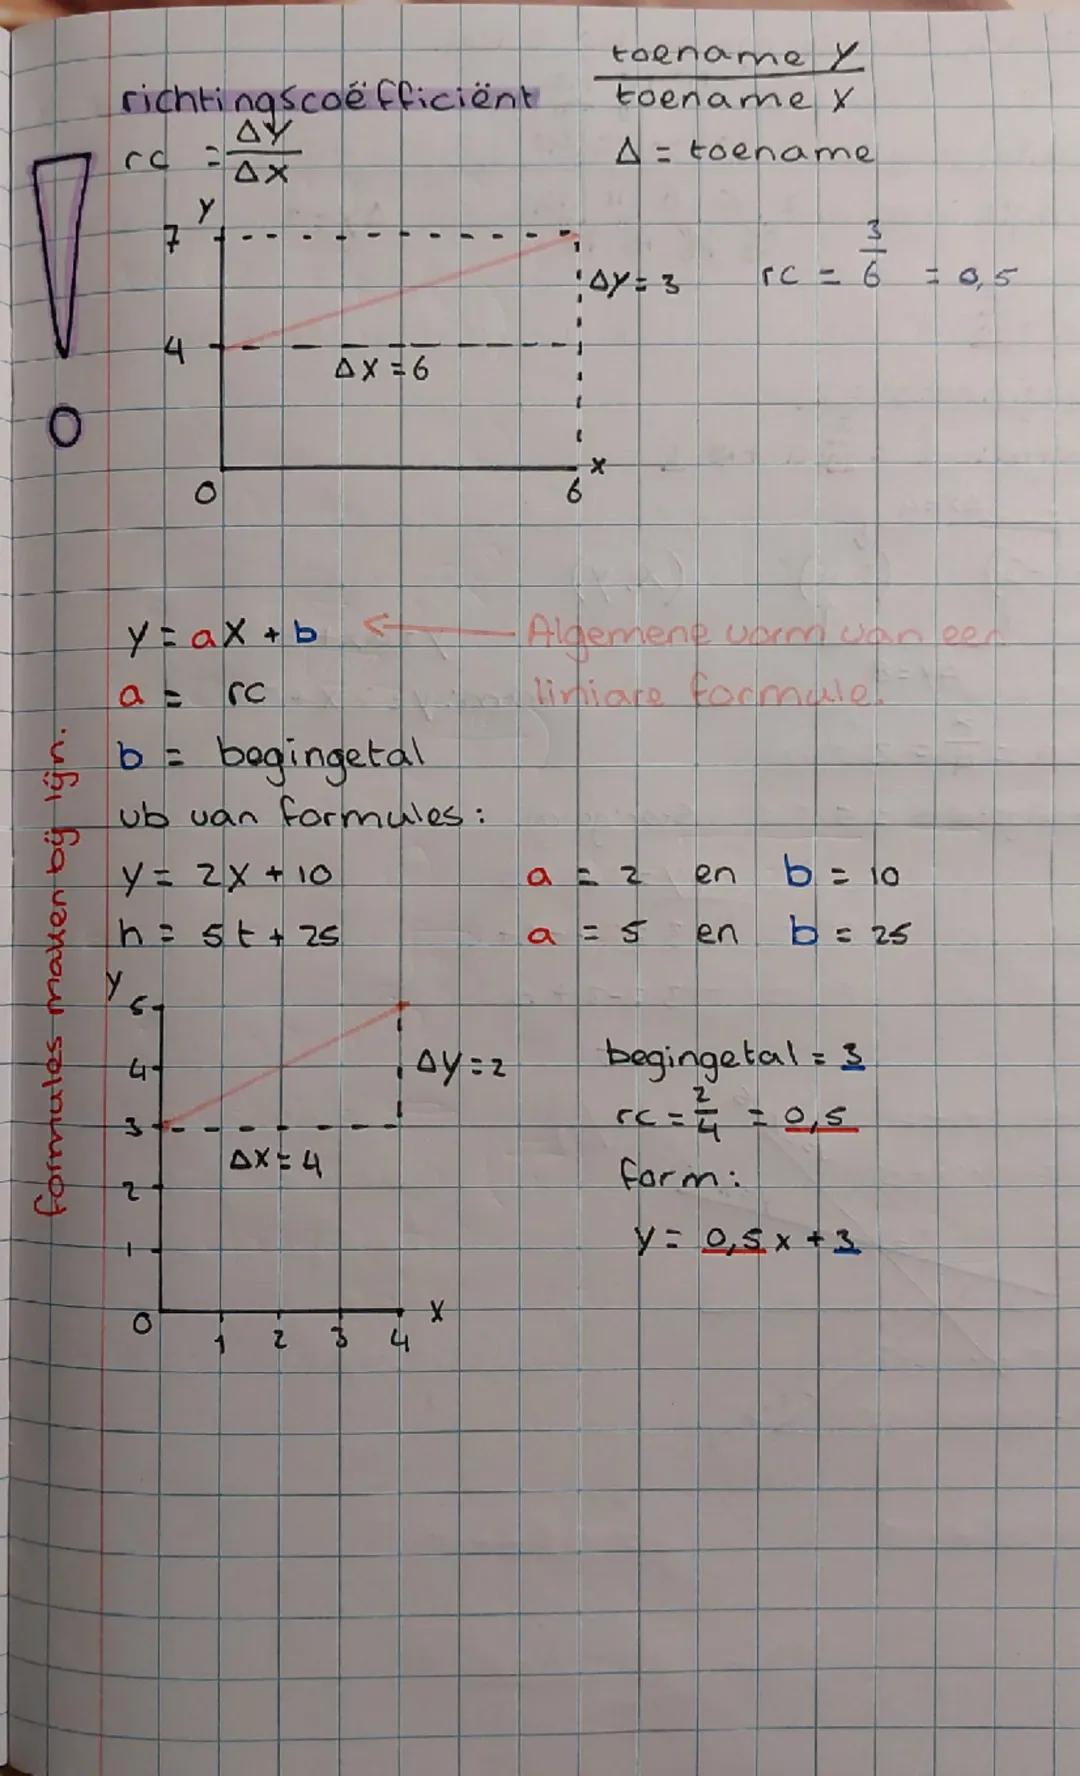 richtingscoëfficiënt
toename y
toename x
rc = Δy
Δx
Δ = toename
y
7
Δy = 3
rc = 3/6 = 0,5
4
Δx = 6
x
0
6
y = ax + b ← Algemene vorm van een
a = rc
liniare formule.
b = begingetal
vb van formules:
y = 2x + 10 a = 2 en b = 10
h = 5t + 25 a = 5 en b = 25
formules maken bij lijn.
y
5
4
Δy = 2
begingetal = 3
3
rc = 2/4 = 0,5
Δx = 4
form:
2
y = 0,5x + 3
1
0
x
1 2 3 4